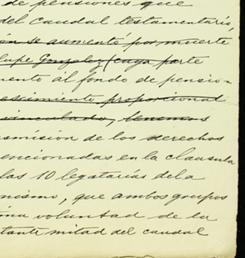 de pensiones que
del caudal testamentario,
ón se aumentó por muerte
lupe Gonzalez (cuya parte
mento al fondo de pension
ecimiento proporcional
vinculado, tenemos
smision de los derechos
encionadas en la clausula
las 10 legatarias de la
mismo, que ambos grupos
ma voluntad de la
tante mitad del caudal